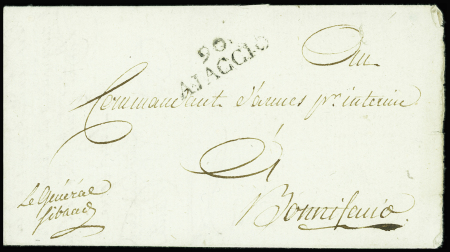 90.
AJACCIO
Au
Commandant d'armes pr. interim
À
Bonnifacio.
Le Général